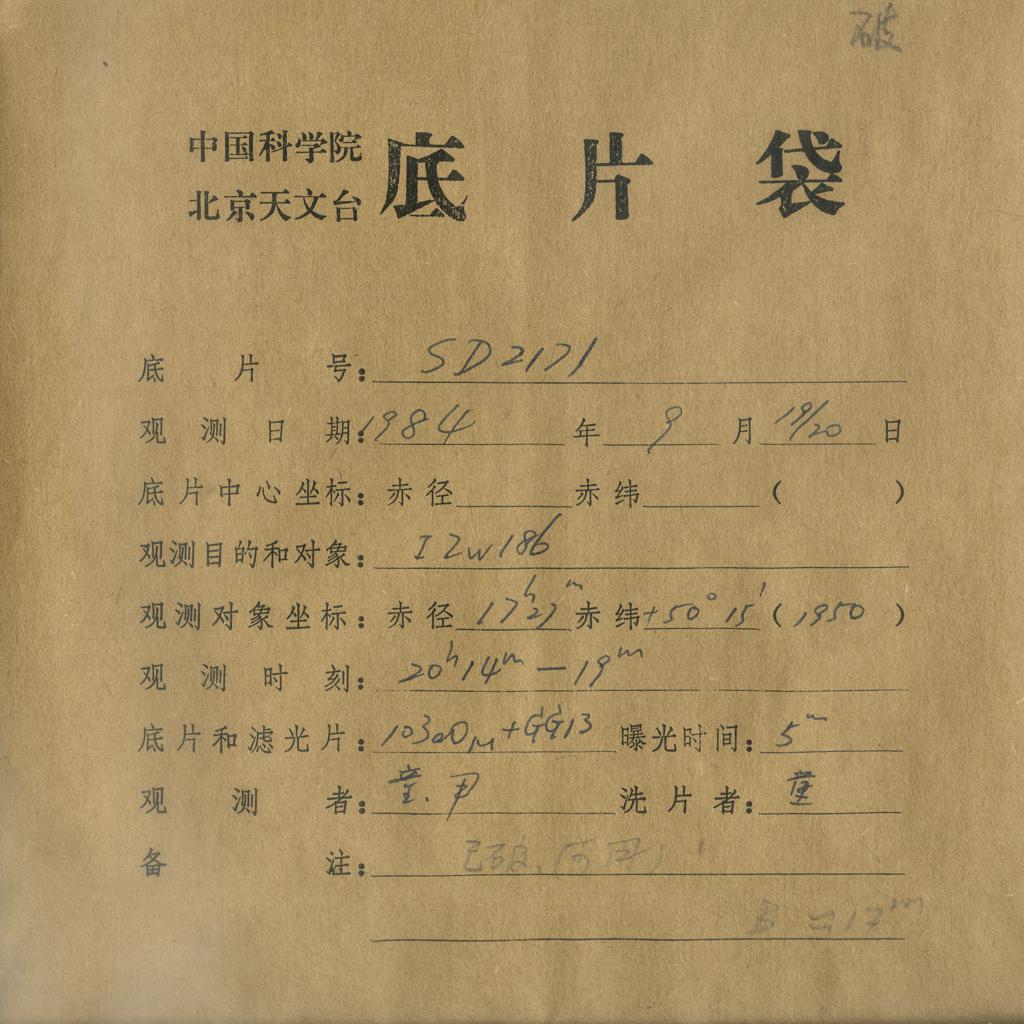 破
中国科学院
北京天文台
底片袋
底片号：SD2171
观测日期：1984年9月19/20日
底片中心坐标：赤径 赤纬 （ ）
观测目的和对象：I Zw186
观测对象坐标：赤径17h27m赤纬+50°15′（1950）
观测时刻：20h14m—19m
底片和滤光片：103aOM+GG13 曝光时间：5m
观测者： 洗片者：
备注：已破
≈17m